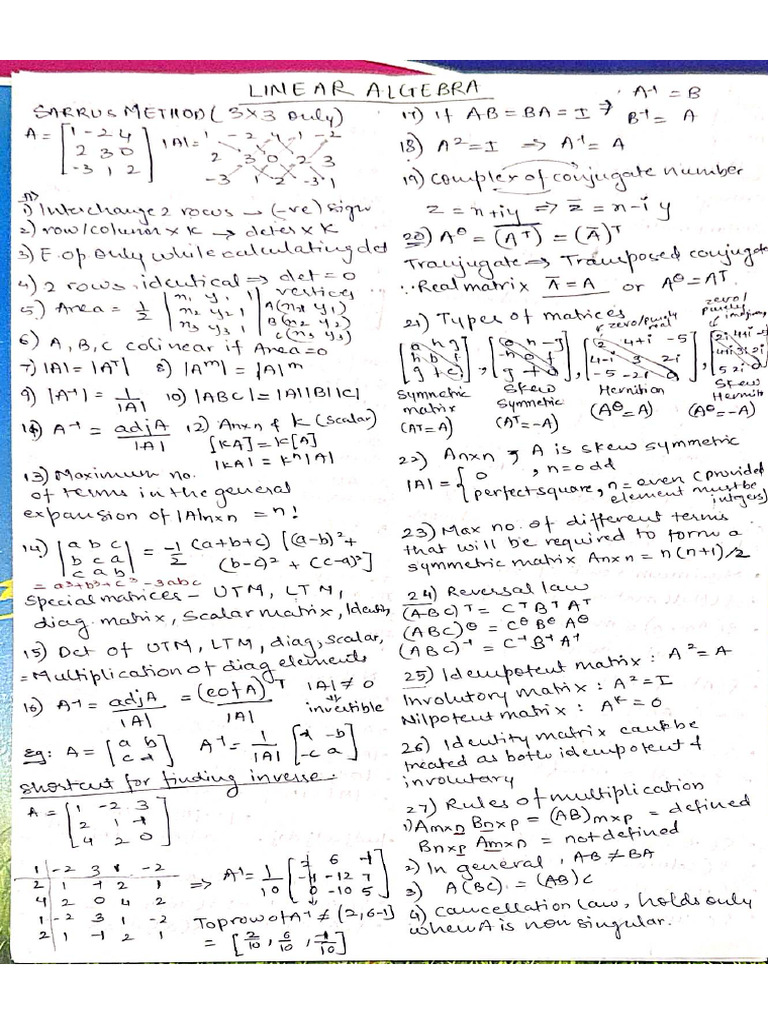 LINEAR ALGEBRA
SARRUS METHOD (3×3 only)
A = [1 -2 4
2 3 0
-3 1 2]
|A| = 1 -2 4 1 -2
2 3 0 2 3
-3 1 2 -3 1
1) Interchange 2 rows → (-ve) sign
2) row/column × K → deter × K
3) E.op only while calculating det
4) 2 rows identical ⇒ det = 0
5) Area = 1/2 |x1 y1 1| vertices
|x2 y2 1| A(x1 y1)
|x3 y3 1| B(x2 y2)
C(x3 y3)
6) A, B, C colinear if Area = 0
7) |A| = |Aᵀ| 8) |Aᵐ| = |A|ᵐ
9) |A⁻¹| = 1/|A| 10) |ABC| = |A||B||C|
11) A⁻¹ = adjA/|A| 12) Anxn & k (scalar)
[KA] = K[A]
|KA| = kⁿ|A|
13) Maximum no.
of terms in the general
expansion of |A|nxn = n!
14) |a b c
b c a
c a b| = -1/2 (a+b+c) [(a-b)² +
(b-c)² + (c-a)²]
= a³+b³+c³-3abc
Special matrices - UTM, LTM,
diag. matrix, Scalar matrix, Identity
15) Det of UTM, LTM, diag, scalar,
= Multiplication of diag elements
16) A⁻¹ = adjA/|A| = (cofA)ᵀ/|A| |A| ≠ 0
invertible
Eg: A = [a b
c d] A⁻¹ = 1/|A| [d -b
-c a]
Shortcut for finding inverse.
A = [1 -2 3
2 1 -1
4 2 0]
1 -2 3 1 -2
2 1 -1 2 1
4 2 0 4 2
1 -2 3 1 -2
2 1 -1 2 1
⇒ A⁻¹ = 1/10 [2 6 -1
-4 -12 7
0 -10 5]
Top row of A⁻¹ ≠ (2,6-1]
= [2/10, 6/10, -1/10]
17) If AB = BA = I ⇒ A⁻¹ = B
B⁻¹ = A
18) A² = I ⇒ A⁻¹ = A
19) Complex of conjugate number
z = x+iy ⇒ z̅ = x-iy
20) Aᶿ = (A̅ᵀ) = (A̅)ᵀ
Tranjugate ⇒ Transposed conjugate
∵ Real matrix A̅ = A or Aᶿ = Aᵀ.
21) Types of matrices
zero/purely real
zero/purely imaginary
[a h g
h b f
g f c], [0 h -g
-h 0 f
g -f 0], [2 4+i -5
4-i 3 2i
-5 -2i 0], [2i 4+i -5
-4+i 3i 2i
5 2i 0]
Symmetric matrix (Aᵀ=A)
Skew Symmetric (Aᵀ=-A)
Hermition (Aᶿ=A)
Skew Hermiti (Aᶿ=-A)
22) Anxn & A is skew symmetric
|A| = {0, n=odd
perfect square, n=even (provided
element must be
intgers)
23) Max no. of different terms
that will be required to form a
symmetric matrix Anxn = n(n+1)/2
24) Reversal law
(ABC)ᵀ = CᵀBᵀAᵀ
(ABC)ᶿ = CᶿBᶿAᶿ
(ABC)⁻¹ = C⁻¹B⁻¹A⁻¹
25) Idempotent matrix : A² = A
Involutory matrix : A² = I
Nilpotent matrix : Aᴷ = 0
26) Identity matrix can be
treated as both idempotent &
involutary
27) Rules of multiplication
1) Amxn Bnxp = (AB)mxp = defined
Bnxp Amxn = not defined
2) In general, AB ≠ BA
3) A(BC) = (AB)C
4) Cancellation law, holds only
when A is non singular.